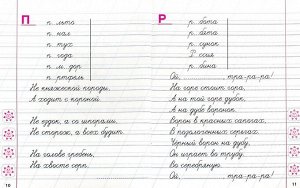 П
п. льто
п. нал
п. тух
п. года
п. м. дор
п. ртфель
Не княжеской породы,
А ходит с короной.
Не ездок, а со шпорами,
Не сторож, а всех будит.
На голове гребень,
На хвосте серп.
10
Р
р. бота
р. бята
р. сунок
Р. ссия
р. бина
Ой, тра-ра-ра!
На горе стоит гора,
А на той горе дубок,
А на дубе воронок.
Ворон в красных сапогах,
В позолоченных серьгах.
Чёрный ворон на дубу,
Он играет во трубу.
Во серебряную.
Ой, тра-ра-ра!
11